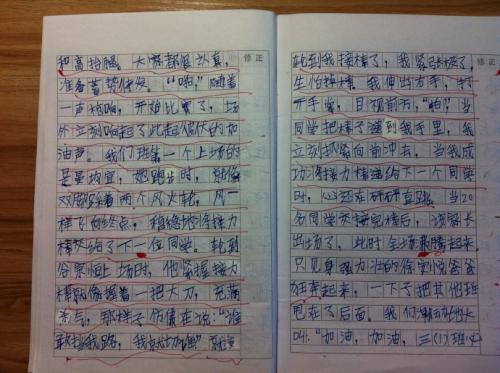 和高抬腿，大家都很认真，
准备蓄势待发。“啪”随着
一声枪响，开始比赛了，场
外立刻响起了此起彼伏的加
油声。我们班第一个上场的
是，她跑步时，就像
双脚踩着两个风火轮，风一
样飞向终点，稳稳地将接力
棒交给了下一位同学。轮到
上场时，他紧握接力
棒就像握着一把大刀，充满
杀气，那样子仿佛在说：“谁
敢挡我路，我就”就要
修正
轮到我接棒了，我紧张极了，
生怕掉棒。我伸出右手，打
开手掌，目视前方，“啪”当
同学把棒子递到我手里，我
立刻抓紧向前冲去，当我成
功将接力棒递给下一个同学
时，心还在砰砰直跳。当20
名同学交接完棒后，该家长
出场了，此时全场沸腾起来
只见身强力壮的徐悦爸爸
狂奔起来，一下子把其他班
甩在了后面。我们激动地大
叫：“加油，加油，三(1)班
修正